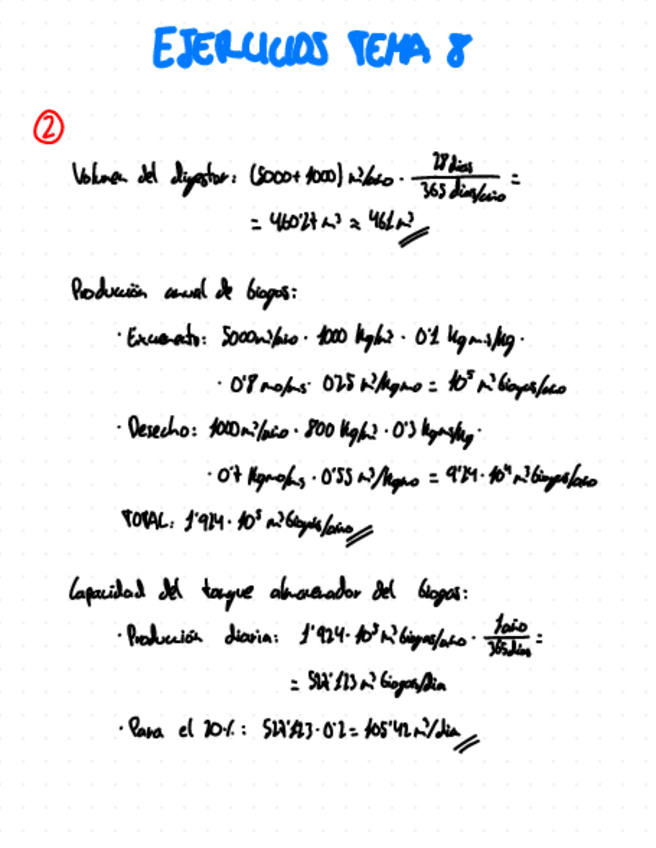 EJERCICIOS TEMA 8
2
Volumen del digestor: (5000+1000) m³/año · 28 días / 365 días/año =
= 460'27 m³ ≈ 461 m³
Producción anual de biogas:
· Excremento: 5000 m³/año · 1000 Kg/m³ · 0'1 Kg ms/kg ·
· 0'8 mo/ms · 0'25 m³/Kgmo = 10⁵ m³ biogas/año
· Desecho: 1000 m³/año · 800 Kg/m³ · 0'3 kgms/kg ·
· 0'7 Kgmo/ms · 0'55 m³/Kgmo = 9'24 · 10⁴ m³ biogas/año
TOTAL: 1'924 · 10⁵ m³ biogás/año
Capacidad del tanque almacenador del biogas:
· Producción diaria: 1'924 · 10⁵ m³ biogas/año · 1 año / 365 días =
= 527'123 m³ biogas/día
· Para el 20%: 527'123 · 0'2 = 105'42 m³/día